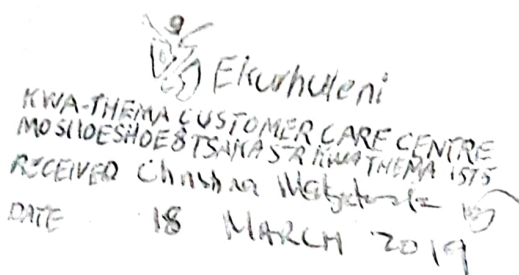 Ekurhuleni
KWA-THEMA CUSTOMER CARE CENTRE
MOSHOESHOE & TSAKA STR KWATHEMA 1575
RECEIVED Christina
DATE 18 MARCH 2019